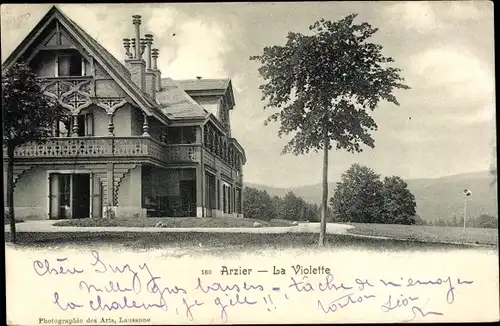 160 Arzier — La Violette
Chère Suzy
Mille gros baisers - tâche de m'envoyer
la chaleur, je gèle !!
Photographie des Arts, Lausanne